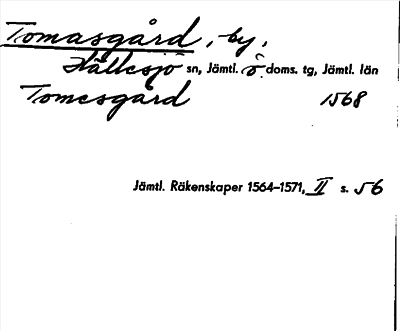 Tomasgård, by,
Hällesjö sn, Jämtl. ö. doms. tg, Jämtl. län
Tomesgård 1568
Jämtl. Räkenskaper 1564–1571, II s. 56